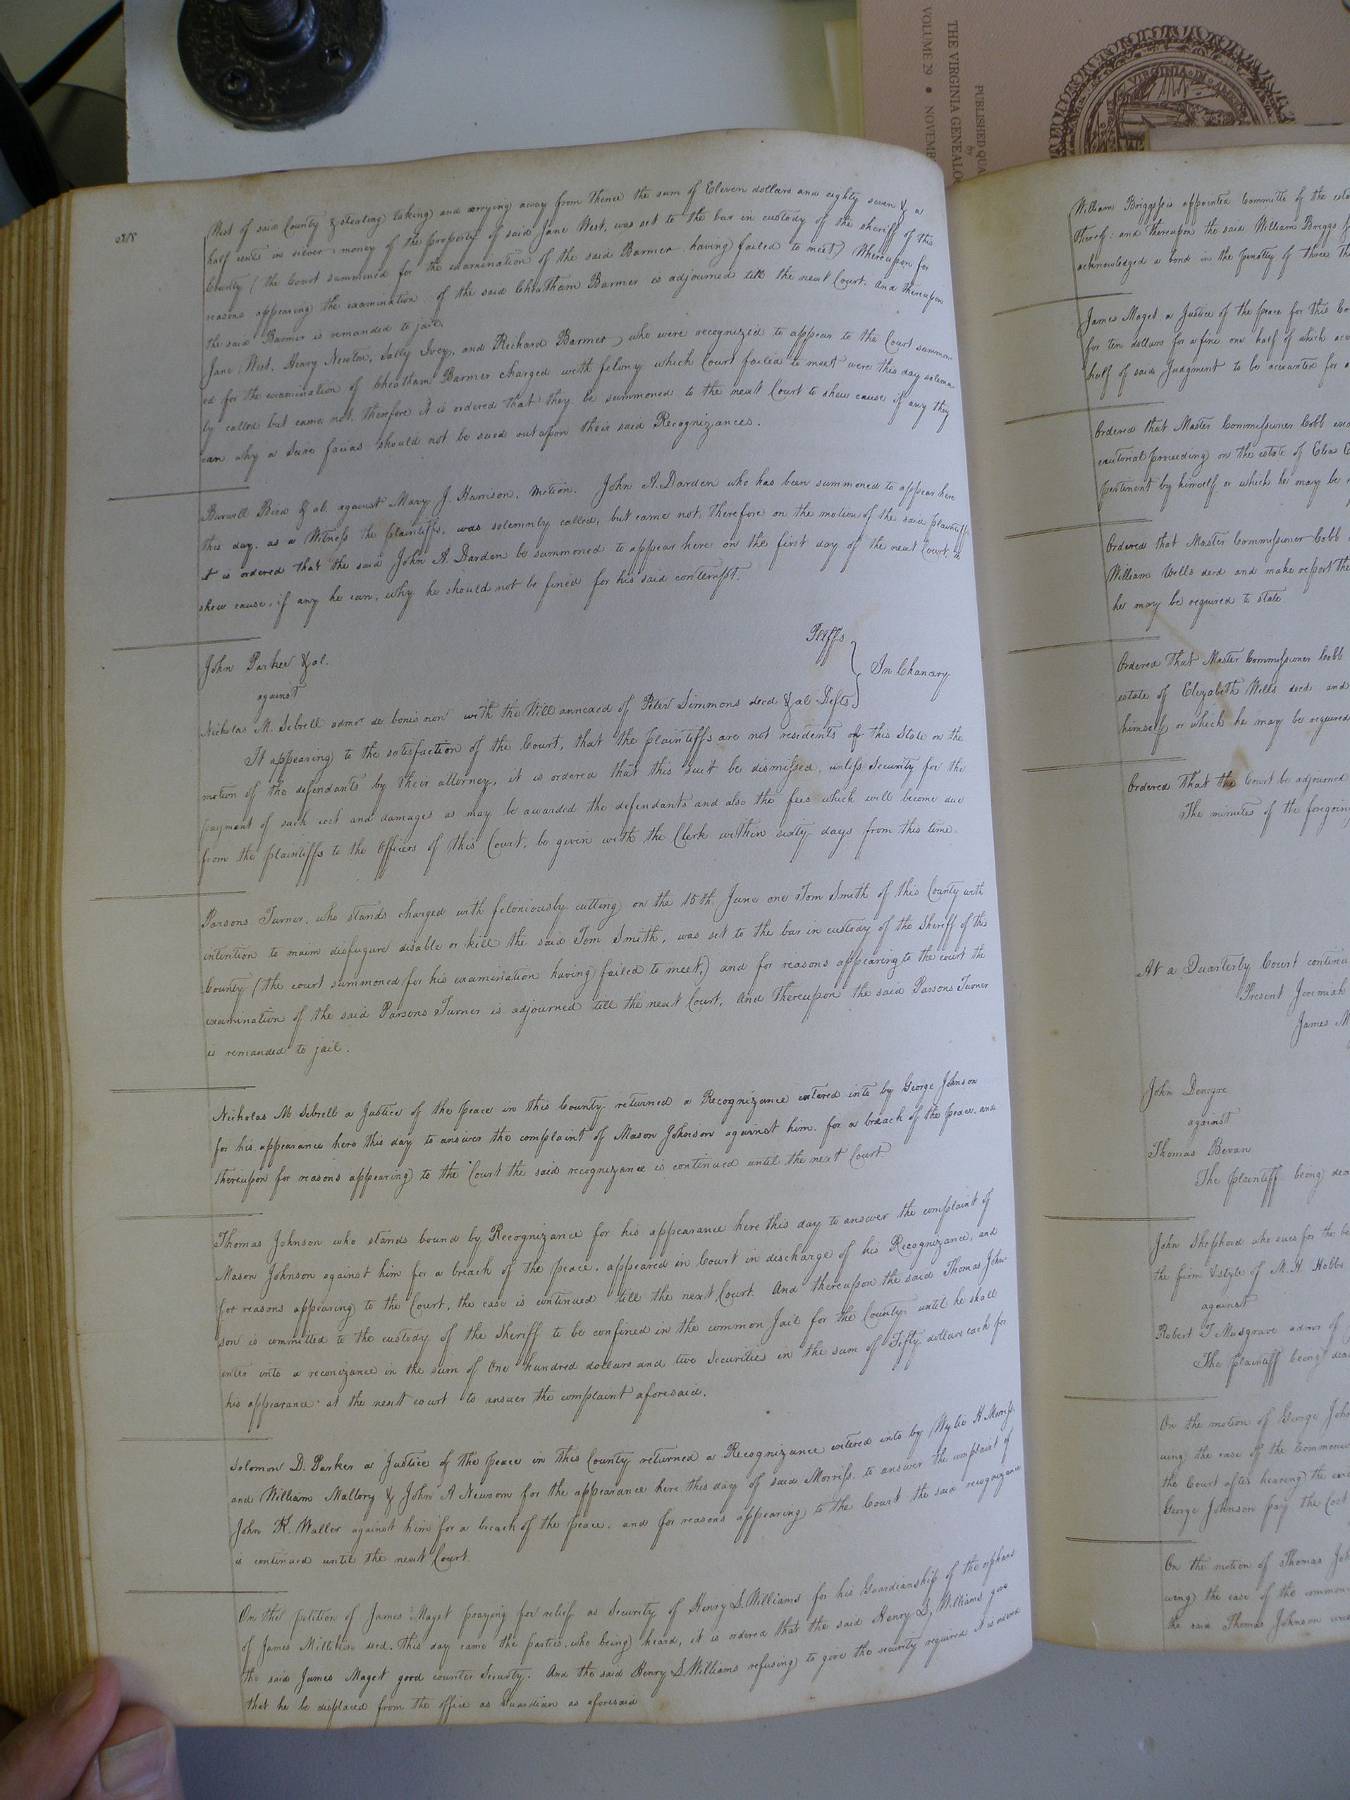 PUBLISHED QUA
by
THE VIRGINIA GENEALO
VOLUME 29 • NOVEMB
VIRGINIA
West of said County & stealing taking and carrying away from thence the sum of Eleven dollars and eighty seven & a
half cents in silver money of the property of said Jane West, was set to the bar in custody of the sheriff of this
County (the Court summoned for the examination of the said Barmer having failed to meet) Whereupon for
reasons appearing the examination of the said Cheatham Barmer is adjourned till the next Court. And thereupon
the said Barmer is remanded to jail.
Jane West, Henry Newton, Sally Ivey, and Richard Barmer who were recognized to appear to the Court summon
ed for the examination of Cheatham Barmer charged with felony which Court failed to meet were this day solemn
ly called but came not, therefore it is ordered that they be summoned to the next Court to shew cause if any they
can why a Scire facias should not be sued out upon their said Recognizances.
Burwell Bird & al. against Mary J. Harrison. Motion. John A. Darden who has been summoned to appear here
this day, as a Witness the plaintiffs, was solemnly called, but came not, Therefore on the motion of the said plaintiffs
it is ordered that the said John A. Darden be summoned to appear here on the first day of the next Court, to
shew cause, if any he can, why he should not be fined for his said contempt.
John Parker & al. Pltffs
against In Chancery
Nicholas M. Sebrell admr. de bonis non with the Will annexed of Peter Simmons decd & al. Defts
It appearing to the satisfaction of the Court, that the plaintiffs are not residents of this State on the
motion of the defendants by their attorney, it is ordered that this suit be dismissed, unless Security for the
payment of such cost and damages as may be awarded the defendants and also the fees which will become due
from the plaintiffs to the Officers of this Court, be given with the Clerk within sixty days from this time.
Parsons Turner, who stands charged with feloniously cutting on the 15th June one Tom Smith of this County with
intention to maim disfugure disable or kill the said Tom Smith, was set to the bar in custody of the Sheriff of this
County (the court summoned for his examination having failed to meet,) and for reasons appearing to the court the
examination of the said Parsons Turner is adjourned till the next Court, And Thereupon the said Parsons Turner
is remanded to jail.
Nicholas M Sebrell a Justice of the peace in this County returned a Recognizance entered into by George Johnson
for his appearance here this day to answer the complaint of Mason Johnson against him, for a breach of the peace, and
thereupon for reasons appearing to the Court the said recognizance is continued until the next Court
Thomas Johnson who stands bound by Recognizance for his appearance here this day to answer the complaint of
Mason Johnson against him for a breach of the peace, appeared in Court in discharge of his Recognizance, and
for reasons appearing to the Court, the case is continued till the next Court. And thereupon the said Thomas John
son is committed to the custody of the Sheriff to be confined in the common Jail for the County until he shall
enter into a reconizance in the sum of One hundred dollars and two Securities in the sum of Fifty dollars each for
his appearance at the next court to answer the complaint aforesaid.
Solomon D. Parker a Justice of the peace in this County returned a Recognizance entered into by Wylie H Morriss
and William Mallory & John A Newsom for the appearance here this day of said Morriss, to answer the complaint of
John K. Waller against him for a breach of the peace, and for reasons appearing to the Court the said recognizance
is continued until the next Court.
On the petition of James Maget praying for relief as Security of Henry S. Williams for his Guardianship of the orphans
of James Millikin decd. this day came the parties, who being heard, it is ordered that the said Henry S. Williams give
the said James Maget good counter Security. And the said Henry S Williams refusing to give the security required it is ordered
that he be displaced from the office as Guardian as aforesaid
William Briggs is appointed Committee of the esta
thereof: and thereupon the said William Briggs
acknowledged a bond in the penalty of three Th
James Maget a Justice of the peace for this Co
for ten dollars for a fine one half of which
half of said Judgment to be accounted for
Ordered that Master Commissioner Cobb
proceeding on the estate of Elias
pertinent by himself or which he may be
Ordered that Master Commissioner Cobb
William Wells decd and make report the
he may be required to state
Ordered that Master Commissioner Cobb
estate of Elizabeth Wells decd and
himself or which he may be required
Ordered that the Court be adjourned
The minutes of the foregoing
At a Quarterly Court continu
Present Jeremiah
James M
John Denegre
against
Thomas Bevan
The plaintiff being
John Shepherd who sues for the be
the firm & style of M. H Hobbs
against
Robert T Musgrave admr of
The plaintiff being
On the motion of George John
wing the case of the Commonw
the Court after hearing the
George Johnson pay the Cost
On the motion of Thomas Joh
wing the case of the common
the said Thomas Johnson